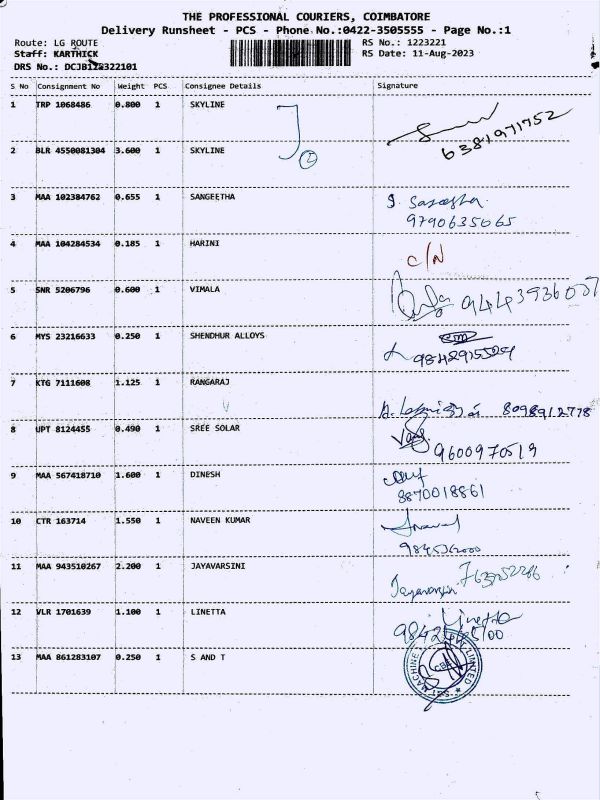 THE PROFESSIONAL COURIERS, COIMBATORE
Delivery Runsheet - PCS - Phone No.:0422-3505555 - Page No.:1
Route: LG ROUTE RS No.: 1223221
Staff: KARTHICK RS Date: 11-Aug-2023
DRS No.: DCJB122322101
S No Consignment No Weight PCS Consignee Details Signature
1 TRP 1068486 0.800 1 SKYLINE
6384971752
2 BLR 4550081304 3.600 1 SKYLINE
2
3 MAA 102384762 0.655 1 SANGEETHA
9790635065
4 MAA 104284534 0.185 1 HARINI
C/N
5 SNR 5206796 0.600 1 VIMALA
6 MYS 23216633 0.250 1 SHENDHUR ALLOYS
7 KTG 7111608 1.125 1 RANGARAJ
8098912778
8 UPT 8124455 0.490 1 SREE SOLAR
9600970519
9 MAA 567418710 1.600 1 DINESH
8870018861
10 CTR 163714 1.550 1 NAVEEN KUMAR
11 MAA 943510267 2.200 1 JAYAVARSINI
Jayavarsini
12 VLR 1701639 1.100 1 LINETTA
Linetta
13 MAA 861283107 0.250 1 S AND T
MACHINE LIMITED
CBE